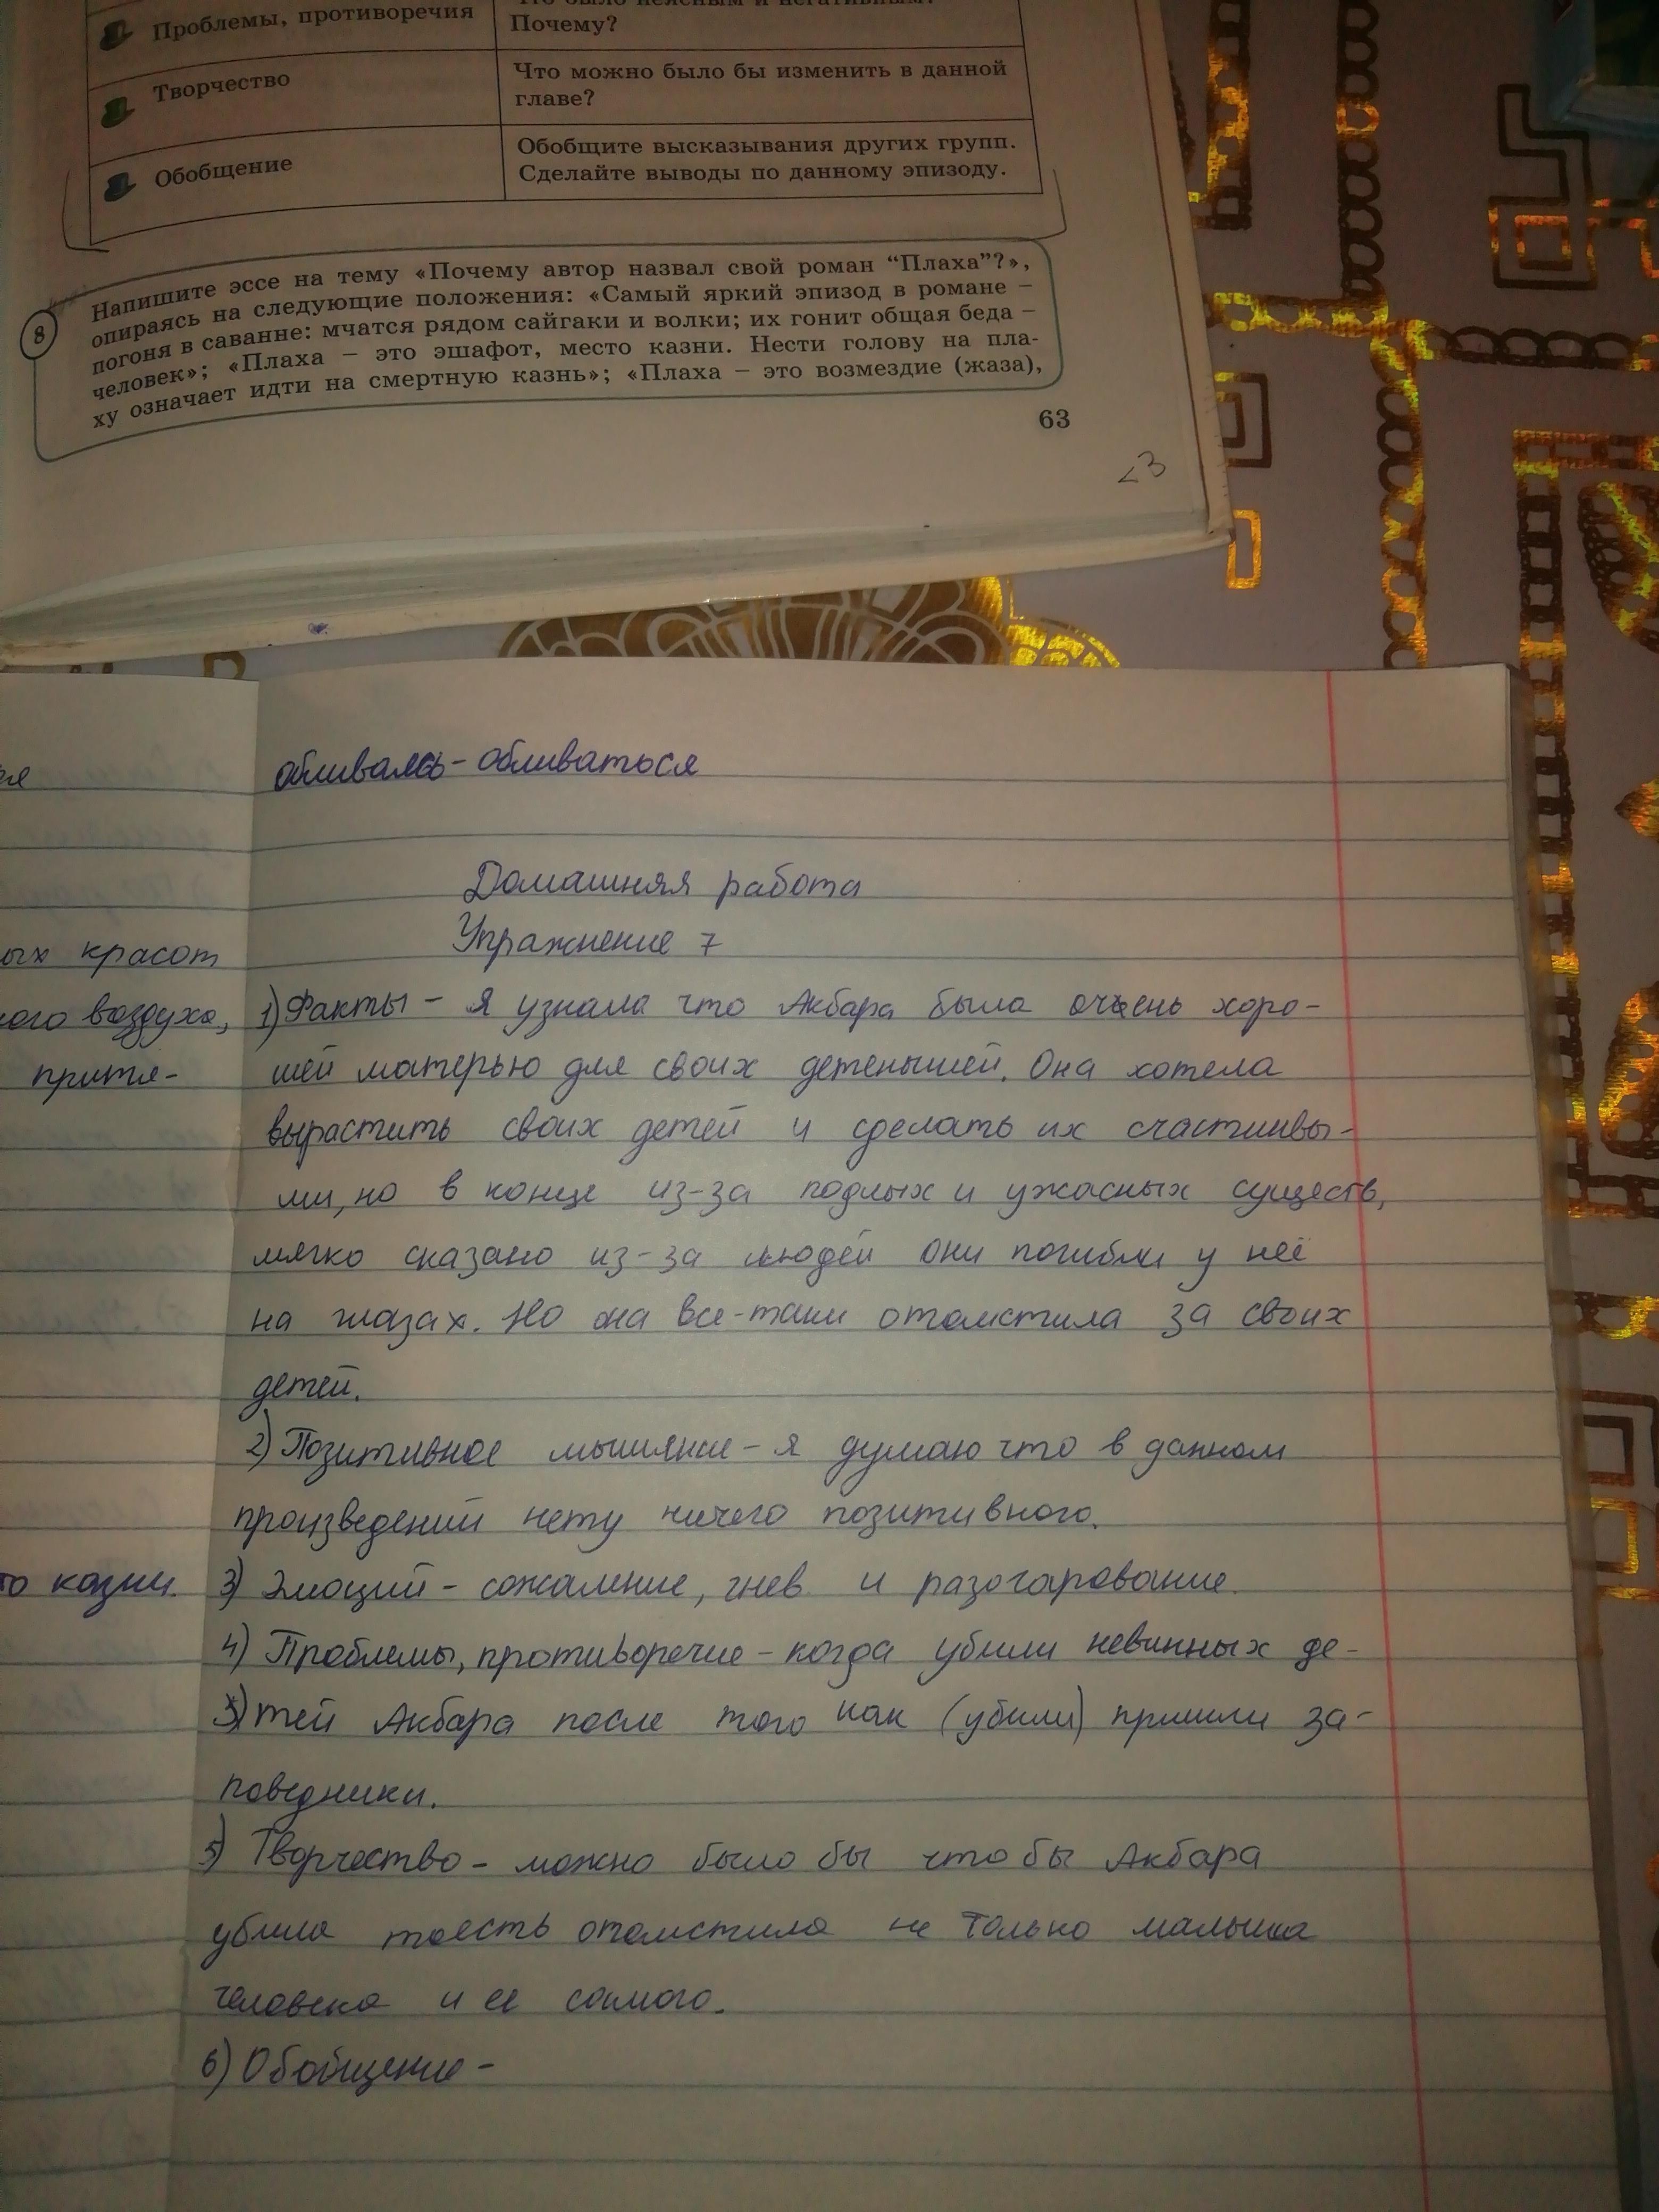 Проблемы, противоречия
Почему?
Творчество
Что можно было бы изменить в данной
главе?
Обобщение
Обобщите высказывания других групп.
Сделайте выводы по данному эпизоду.
8
Напишите эссе на тему «Почему автор назвал свой роман “Плаха”?»,
опираясь на следующие положения: «Самый яркий эпизод в романе –
погоня в саванне: мчатся рядом сайгаки и волки; их гонит общая беда –
человек»; «Плаха – это эшафот, место казни. Нести голову на пла-
ху означает идти на смертную казнь»; «Плаха – это возмездие (жаза),
63
23
обливаясь - обливаться
Домашняя работа
Упражнение 7
ых красот
ого воздуха,
притя-
то казни.
1) Факты - я узнала что Акбара была очень хоро-
шей матерью для своих детенышей. Она хотела
вырастить своих детей и сделать их счастливы-
ми, но в конце из-за подлых и ужасных существ,
мягко сказано из-за людей они погибли у неё
на глазах. Но она все-таки отомстила за своих
детей.
2) Позитивное мышление - я думаю что в данном
произведений нету ничего позитивного.
3) Эмоций - сожаление, гнев и разочарование.
4) Проблемы, противоречие - когда убили невинных де-
5) тей Акбара после того как (убили) пришли за-
поведники.
5) Творчество - можно было бы что бы Акбара
убила тоесть отомстила не только малыша
человека и ее самого.
6) Обобщение -